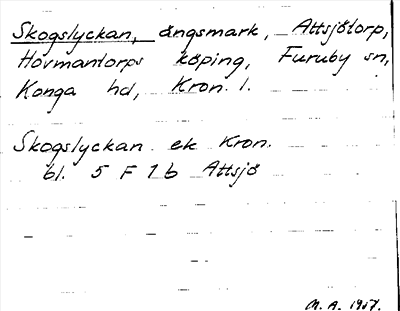 Skogslyckan, ängsmark, Attsjötorp,
Hovmantorps köping, Furuby sn,
Konga hd, Kron. l.
Skogslyckan ek Kron.
bl. 5 F 1 b Attsjö
M. A. 1917.